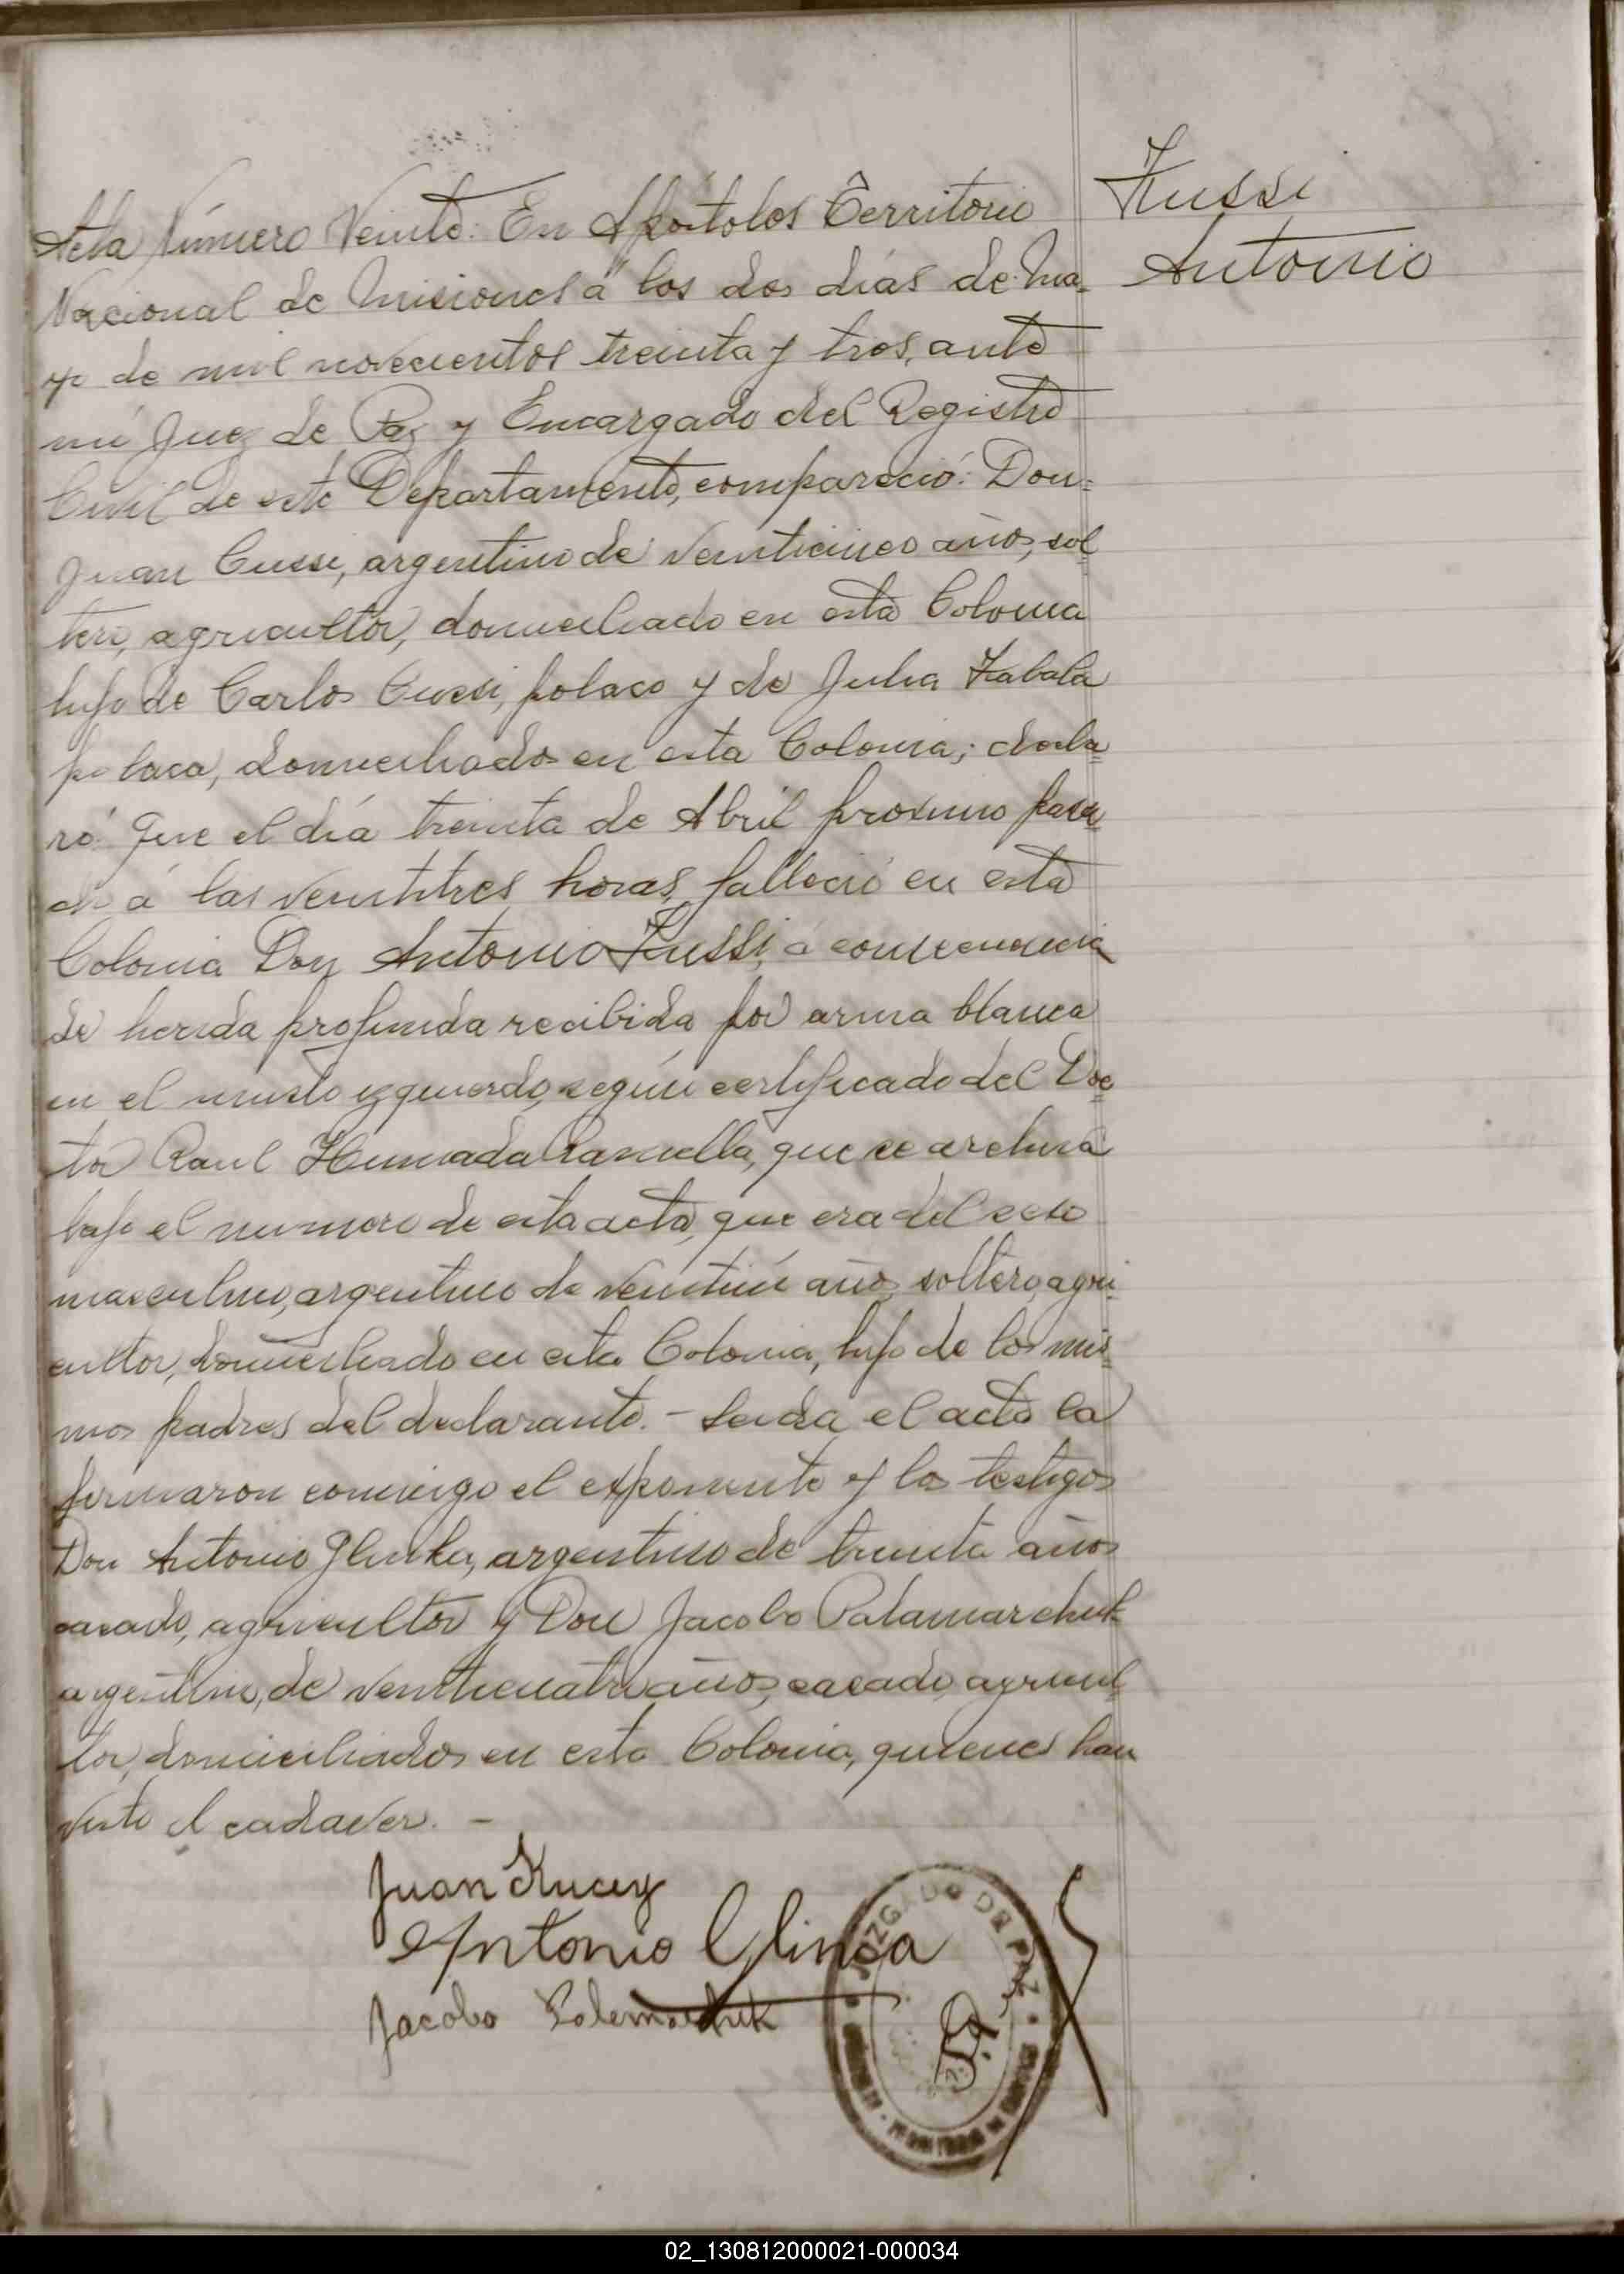 Kussi
Antonio
Acta Número Veinte: En Apóstoles Territorio
Nacional de Misiones á los dos días de Ma-
yo de mil novecientos treinta y tres, ante
mi Juez de Paz y Encargado del Registro
Civil de este Departamento, compareció: Don
Juan Cussi, argentino de veinticinco años, sol
tero, agricultor, domiciliado en esta Colonia
hijo de Carlos Cussi, polaco y de Julia Kabala
polaca, domiciliados en esta Colonia; decla
ró: Que el día treinta de Abril proximo pasa
do á las veintitres horas, falleció en esta
Colonia Don Antonio Kussi, á consecuencia
de herida profunda recibida por arma blanca
en el muslo izquierdo, según certificado del Doc
tor Raul Humada Ramella, que se archiva
bajo el numero de esta acta, que era del sexo
masculino, argentino de veintiun años, soltero, agri
cultor, domiciliado en esta Colonia, hijo de los mis
mos padres del declarante. - Leida el acta la
firmaron conmigo el exponente y los testigos
Don Antonio Glinka, argentino de treinta años
casado, agricultor y Don Jacobo Palamarchuk
argentino, de veinticuatro años, casado, agricul
tor, domiciliados en esta Colonia, quienes han
visto el cadaver. -
Juan Kucey
Antonio Glinca
Jacobo Palemarchuk
JUZGADO DE PAZ
02_130812000021-000034